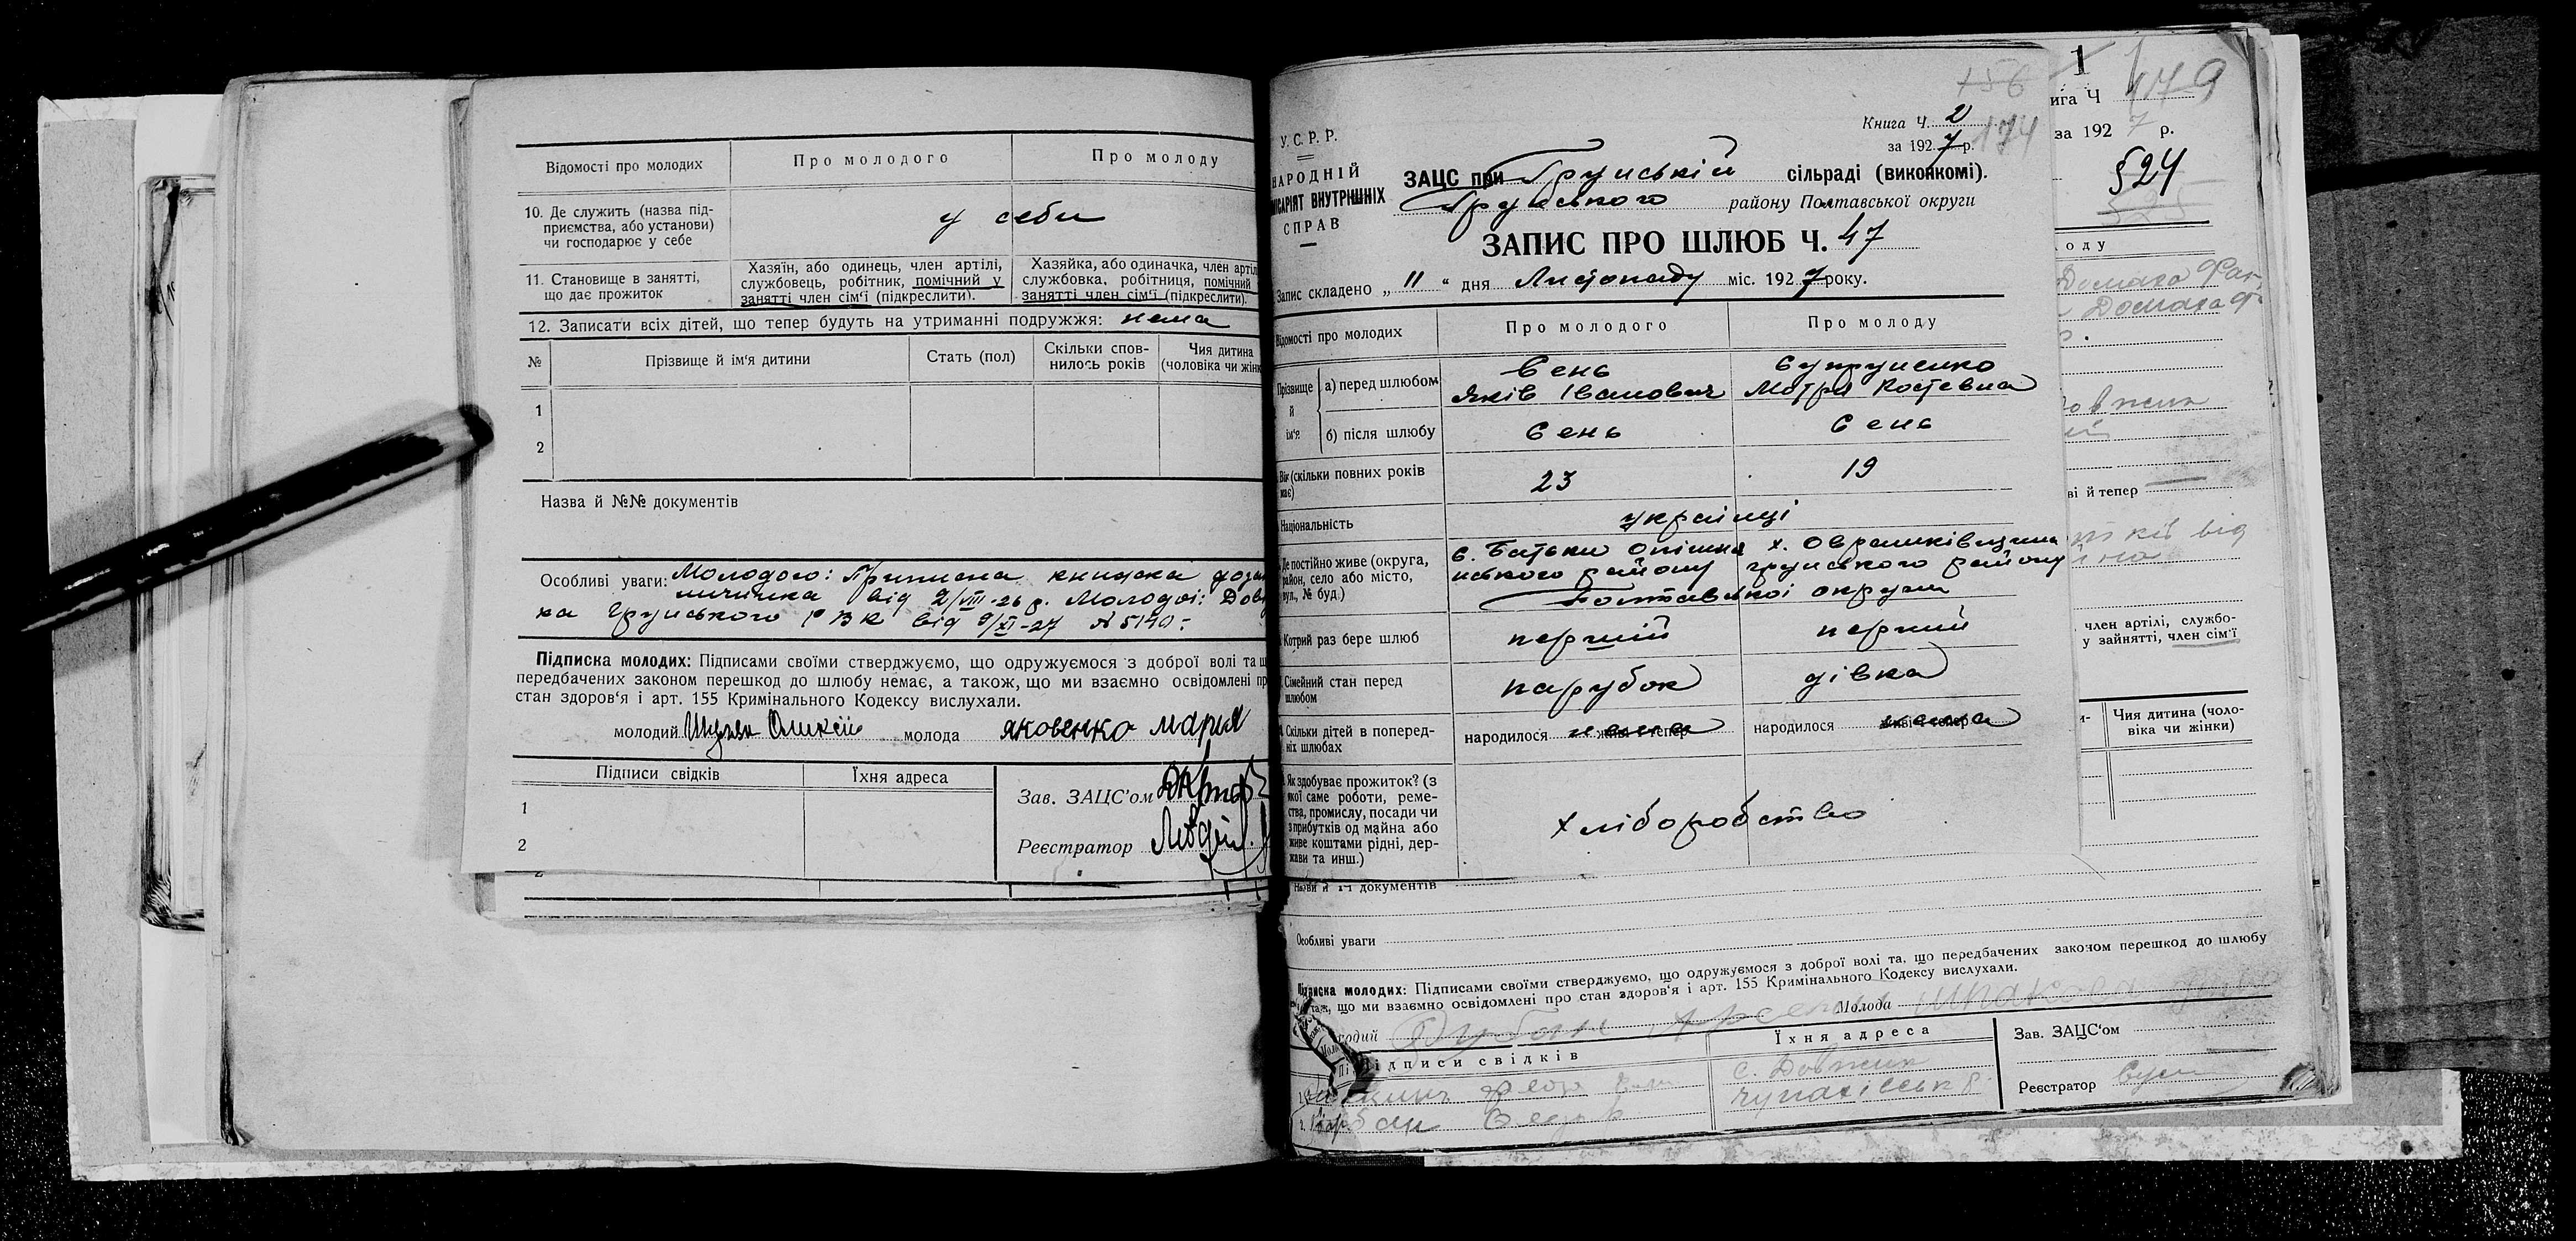 Відомості про молодих
Про молодого
Про молоду
10. Де служить (назва під-
приємства, або установи)
чи господарює у себе
у себи
11. Становище в занятті,
що дає прожиток
Хазяїн, або одинець, член артілі,
службовець, робітник, помічний у
занятті член сім'ї (підкреслити).
Хазяйка, або одиначка, член артіл
службовка, робітниця, помічний
занятті член сім'ї (підкреслити).
12. Записати всіх дітей, що тепер будуть на утриманні подружжя: нема
№
Прізвище й ім'я дитини
Стать (пол)
Скільки спов-
нилось років
Чия дитина
(чоловіка чи жінк
1
2
Назва й №№ документів
Особливі уваги: Молодого: Приписна книжка
від 2/VIII-26 р. Молодої: Дов
ка Грунського РВК від 9/XI-27 № 5140
Підписка молодих: Підписами своїми стверджуємо, що одружуємося з доброї волі та щ
передбачених законом перешкод до шлюбу немає, а також, що ми взаємно освідомлені пр
стан здоров'я і арт. 155 Кримінального Кодексу вислухали.
молодий Олексій молода яковенко мария
Підписи свідків
Їхня адреса
1
2
Зав. ЗАЦС'ом
Реєстратор
У.С.Р.Р.
НАРОДНІЙ
ІСАРІЯТ ВНУТРІШНІХ
СПРАВ
156
Книга Ч. 2
за 1927 р. 174
ЗАЦС при Грунській сільраді (виконкомі).
Грунського району Полтавської округи
ЗАПИС ПРО ШЛЮБ Ч. 47
Запис складено „ 11 “ дня Листопаду міс. 1927 року.
Відомості про молодих
Про молодого
Про молоду
Прізвище
й
ім'я
а) перед шлюбом
Сень
Яків Іванович
Супруненко
Мотря Костевна
б) після шлюбу
Сень
Сень
Вік (скільки повних років
має)
23
19
Національність
українці
Де постійно живе (округа,
район, село або місто,
вул., № буд.)
с. Батьки Опішня
нського району
х.
грунського району
Полтавської округи
Котрий раз бере шлюб
перший
перший
Сімейний стан перед
шлюбом
парубок
дівка
Скільки дітей в поперед-
ніх шлюбах
народилося нема
народилося нема
Як здобуває прожиток? (з
якої саме роботи, реме-
ства, промислу, посади чи
з прибутків од майна або
живе коштами рідні, дер-
жави та инш.)
хліборобство
1
ига Ч 179
за 1927 р.
524
525
оду
Домаха
Домаха
ві й тепер
від
член артілі, службо-
у зайнятті, член сім'ї
Чия дитина (чоло-
віка чи жінки)
Назви й документів
Особливі уваги
Підписка молодих: Підписами своїми стверджуємо, що одружуємося з доброї волі та, що передбачених законом перешкод до шлюбу
що ми взаємно освідомлені про стан здоров'я і арт. 155 Кримінального Кодексу вислухали.
Молода
Підписи свідків
Їхня адреса
с. Довжик
Зав. ЗАЦС'ом
Реєстратор